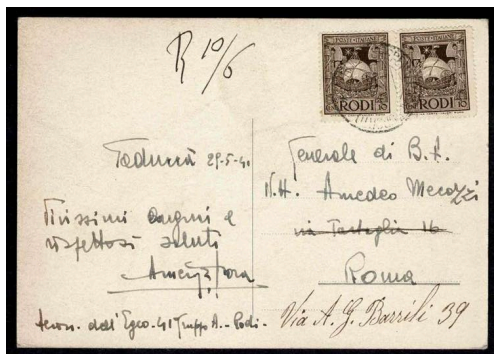 R 10/6
POSTE ITALIANE
RODI 10
POSTE ITALIANE
RODI 10
Gadurrà 29-5-41
Vivissimi auguri e
rispettosi saluti
Aeron. dell'Egeo - 41 Gruppo A. - Rodi -
Generale di B.A.
N.H. Amedeo Mecozzi
via Tartaglia 16
Roma
Via A. G. Barrili 39